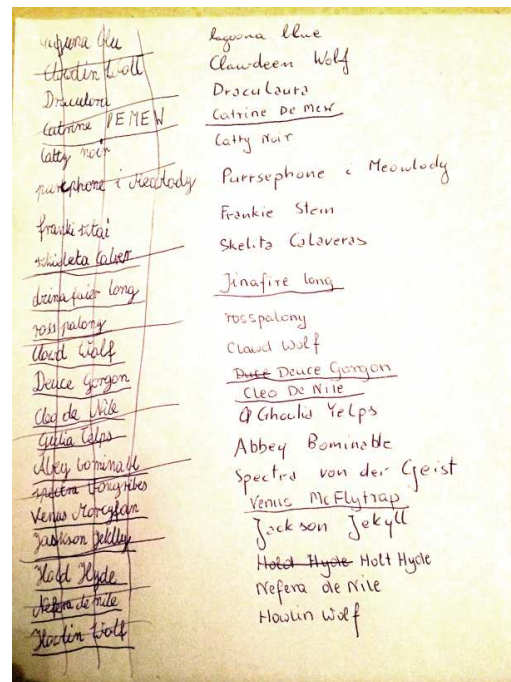 laguna blu
Clowdin Woll
Draculora
Catrine DEMEW
Catty noir
purephone i Meowlody
franki sztai
szkieleta Calver
dzina faier long
ross palony
Clowd Walf
Deuce Gorgon
Cleo de Nile
Gulia Jelps
Abey bominabl
spectra
Venus
Jackson Jeklly
Hald Hyde
Nefera de nile
Howlin Wolf
Lagoona blue
Clawdeen Wolf
Draculaura
Catrine De Mew
Catty Noir
Purrsephone i Meowlody
Frankie Stein
Skelita Calaveras
Jinafire long
rosspalony
Clawd Wolf
Duce Deuce Gorgon
Cleo De Nile
Ghoulia Yelps
Abbey Bominable
Spectra von der Geist
Venus McFlytrap
Jackson Jekyll
Hold Hyde Holt Hyde
Nefera de Nile
Howlin Wolf